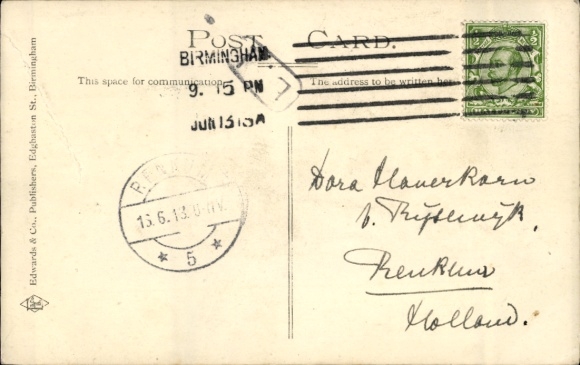 POST CARD.
BIRMINGHAM
9. 15 PM
JUN 13 13 A
This space for communication
The address to be written her
Edwards & Co., Publishers, Edgbaston St., Birmingham
15.6.13.
5
Dora Haverkorn
v. Rijsewijk,
Renkum
Holland.